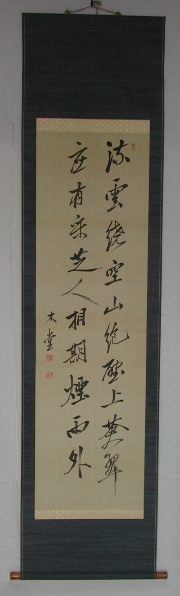 流雲繞空山絶壁上蒼翠
应有采芝人相期煙雨外
木堂